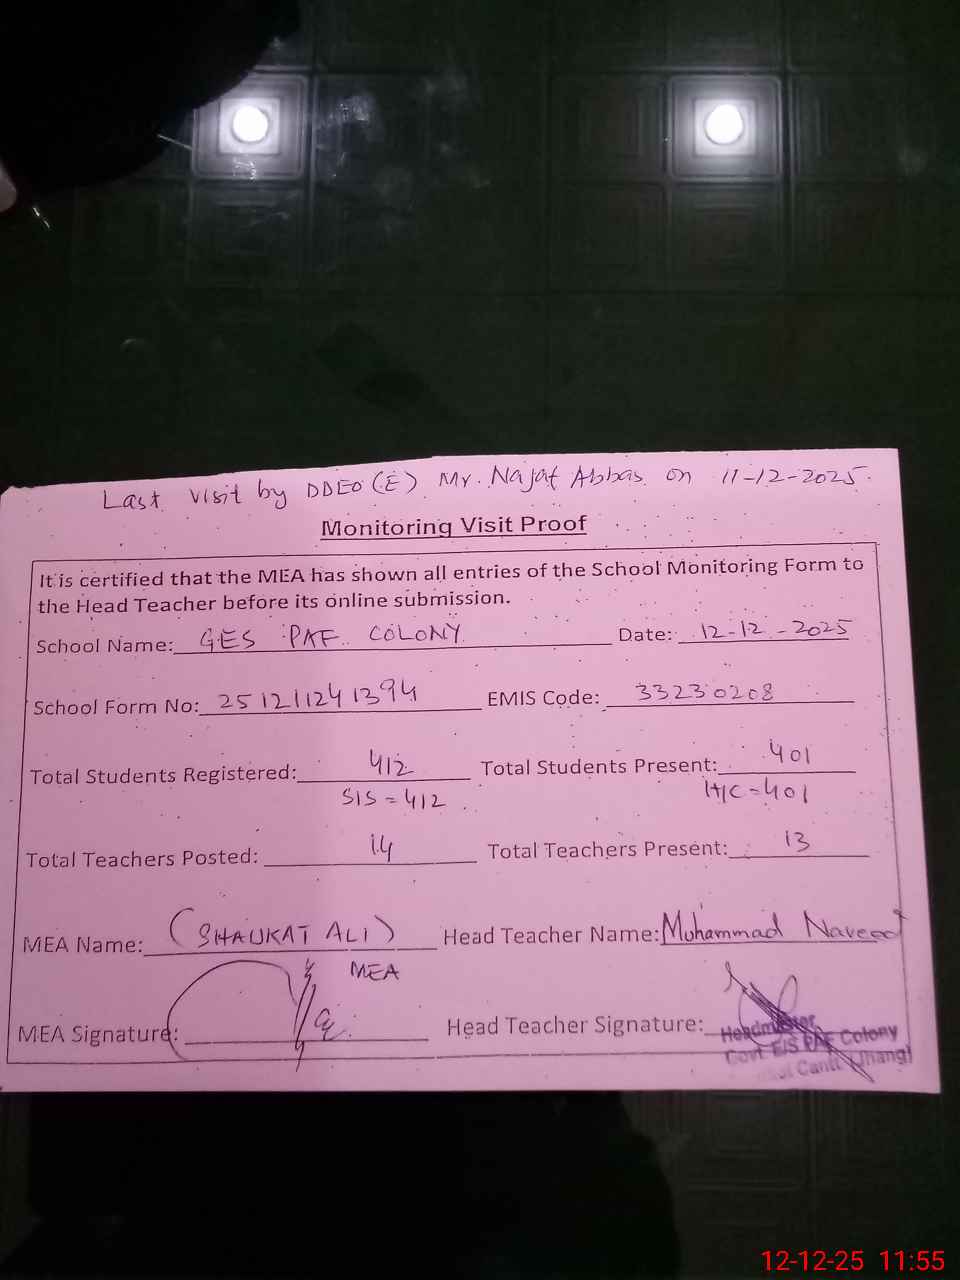 Last visit by DDEO (E) Mr. Najaf Abbas on 11-12-2025.
Monitoring Visit Proof
It is certified that the MEA has shown all entries of the School Monitoring Form to
the Head Teacher before its online submission.
School Name: GES PAF COLONY Date: 12-12-2025
School Form No: 251211241394 EMIS Code: 33230208
Total Students Registered: 412 Total Students Present: 401
SIS = 412 H/C = 401
Total Teachers Posted: 14 Total Teachers Present: 13
MEA Name: (SHAUKAT ALI) Head Teacher Name: Muhammad Naveed
MEA
MEA Signature: Head Teacher Signature:
Headmaster
Govt. E/S PAF Colony
Cantt (Jhang)
12-12-25 11:55